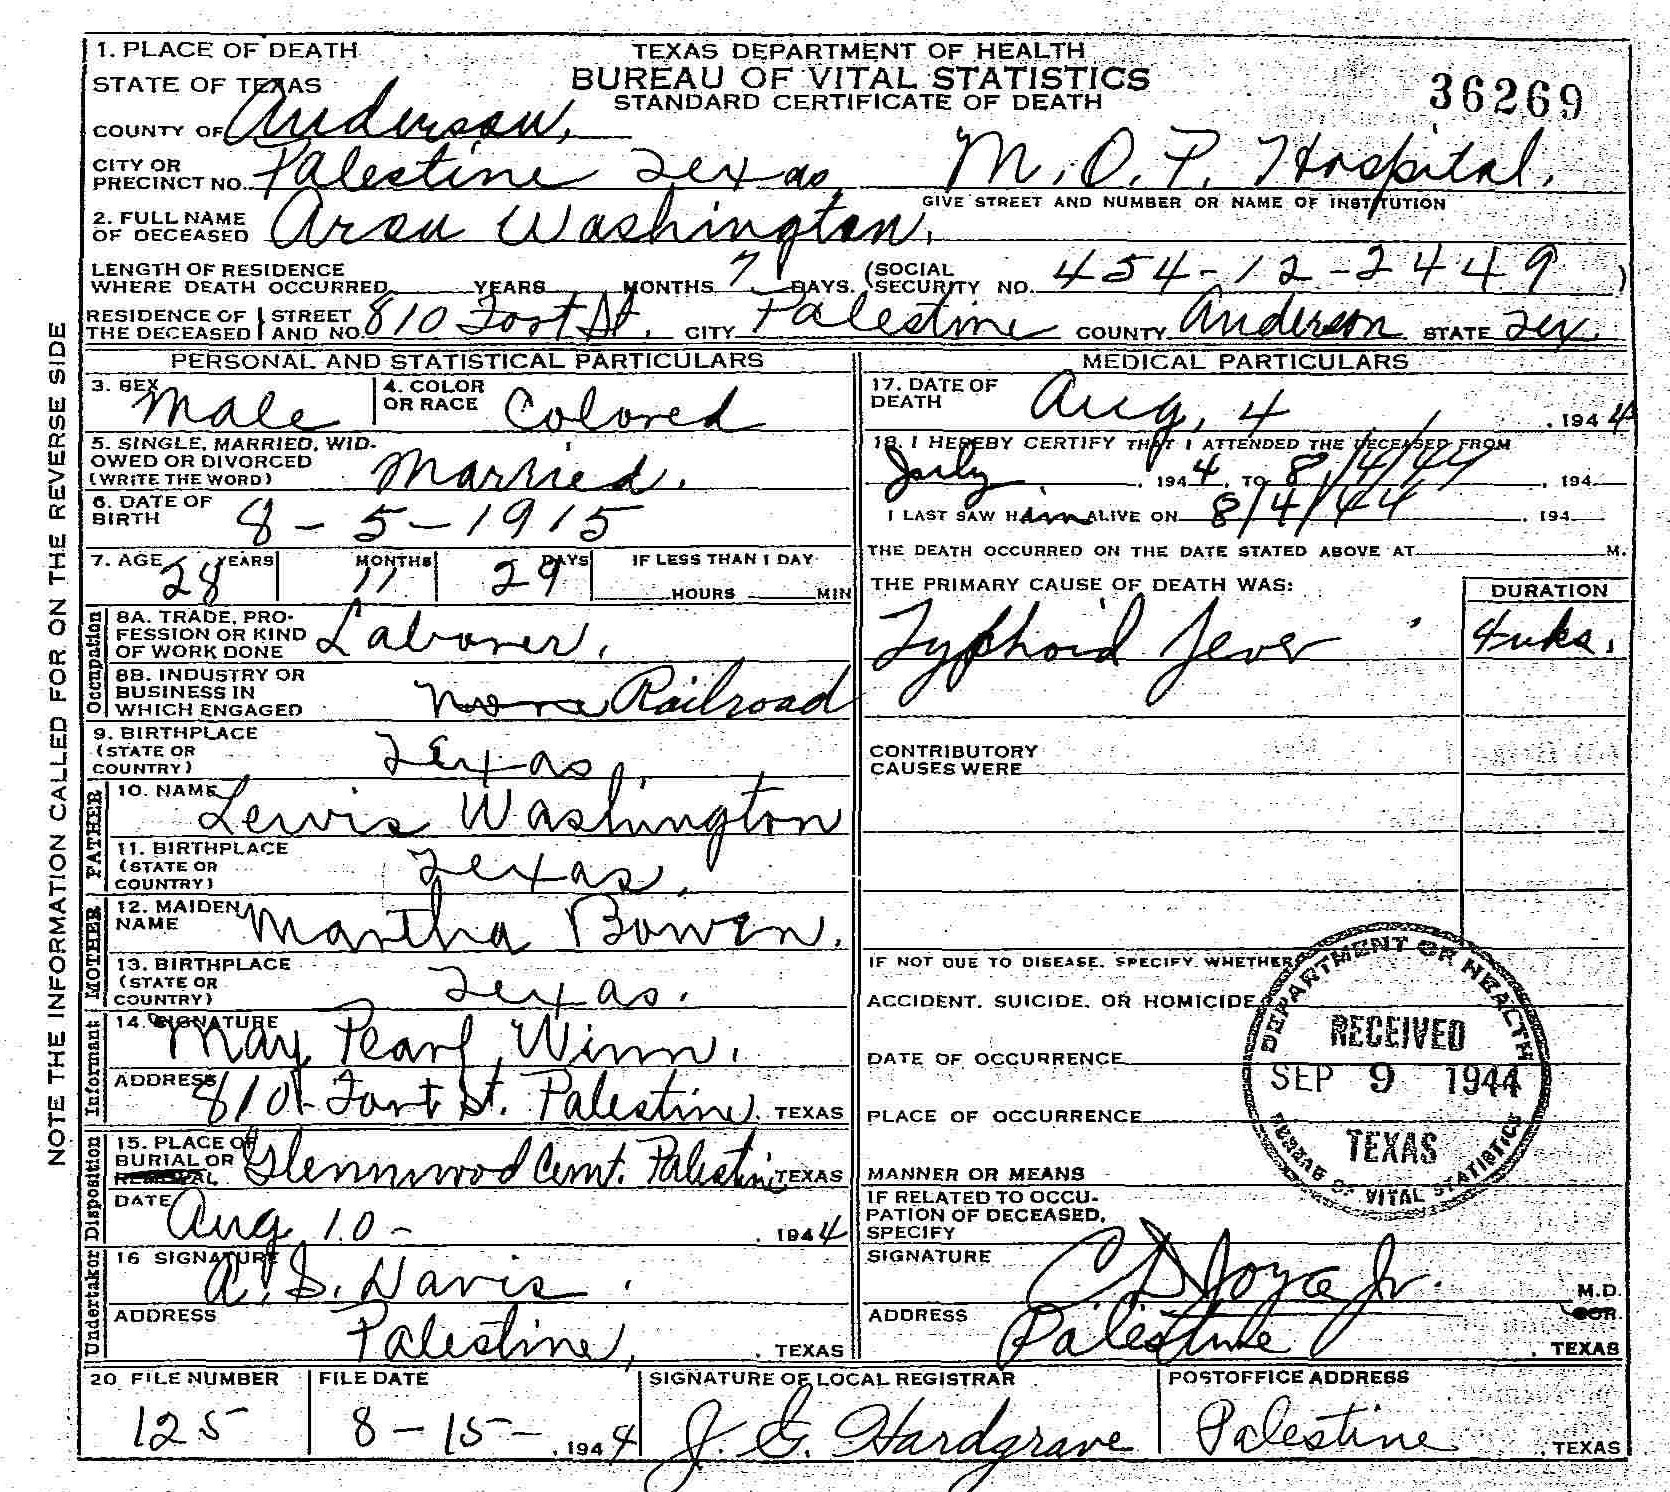 1. PLACE OF DEATH
STATE OF TEXAS
COUNTY OF Anderson,
TEXAS DEPARTMENT OF HEALTH
BUREAU OF VITAL STATISTICS
STANDARD CERTIFICATE OF DEATH
36269
CITY OR PRECINCT NO. Palestine Texas, M. O. P. Hospital.
GIVE STREET AND NUMBER OR NAME OF INSTITUTION
2. FULL NAME OF DECEASED Arsu Washington.
LENGTH OF RESIDENCE WHERE DEATH OCCURRED YEARS MONTHS 7 DAYS. (SOCIAL SECURITY NO. 454-12-2449)
RESIDENCE OF THE DECEASED STREET AND NO. 810 Fort St. CITY Palestine COUNTY Anderson STATE Tex.
NOTE THE INFORMATION CALLED FOR ON THE REVERSE SIDE
PERSONAL AND STATISTICAL PARTICULARS
3. SEX Male 4. COLOR OR RACE Colored
5. SINGLE, MARRIED, WID-
OWED OR DIVORCED
(WRITE THE WORD) Married.
6. DATE OF BIRTH 8-5-1915
7. AGE 28 YEARS 11 MONTHS 29 DAYS IF LESS THAN 1 DAY
HOURS MIN
Occupation
8A. TRADE, PRO-
FESSION OR KIND
OF WORK DONE Laborer.
8B. INDUSTRY OR
BUSINESS IN
WHICH ENGAGED none Railroad
9. BIRTHPLACE
(STATE OR
COUNTRY) Texas.
FATHER
10. NAME Lewis Washington
11. BIRTHPLACE
(STATE OR
COUNTRY) Texas.
MOTHER
12. MAIDEN NAME Martha Bowen.
13. BIRTHPLACE
(STATE OR
COUNTRY) Texas.
Informant
14. SIGNATURE May Pearl Winn.
ADDRESS 810 Fort St. Palestine. TEXAS
Disposition
15. PLACE OF
BURIAL OR
REMOVAL Glennwood Cemt. Palestine TEXAS
DATE Aug 10- , 1944
Undertakor
16 SIGNATURE A. S. Davis
ADDRESS Palestine, , TEXAS
MEDICAL PARTICULARS
17. DATE OF DEATH Aug, 4 , 1944
18. I HEREBY CERTIFY THAT I ATTENDED THE DECEASED FROM
July , 1944, TO 8/4/44 , 194
I LAST SAW Him ALIVE ON 8/4/44 , 194
THE DEATH OCCURRED ON THE DATE STATED ABOVE AT M.
THE PRIMARY CAUSE OF DEATH WAS: DURATION
Typhoid Fever 4 wks.
CONTRIBUTORY
CAUSES WERE
IF NOT DUE TO DISEASE, SPECIFY WHETHER
ACCIDENT, SUICIDE, OR HOMICIDE
DATE OF OCCURRENCE
PLACE OF OCCURRENCE
MANNER OR MEANS
IF RELATED TO OCCU-
PATION OF DECEASED,
SPECIFY
DEPARTMENT OF HEALTH
RECEIVED
SEP 9 1944
TEXAS
BUREAU OF VITAL STATISTICS
SIGNATURE C. D. Joyce Jr. M.D.
OR.
ADDRESS Palestine , TEXAS
20 FILE NUMBER 125
FILE DATE 8-15- , 1944
SIGNATURE OF LOCAL REGISTRAR J. G. Hardgrave
POSTOFFICE ADDRESS Palestine , TEXAS